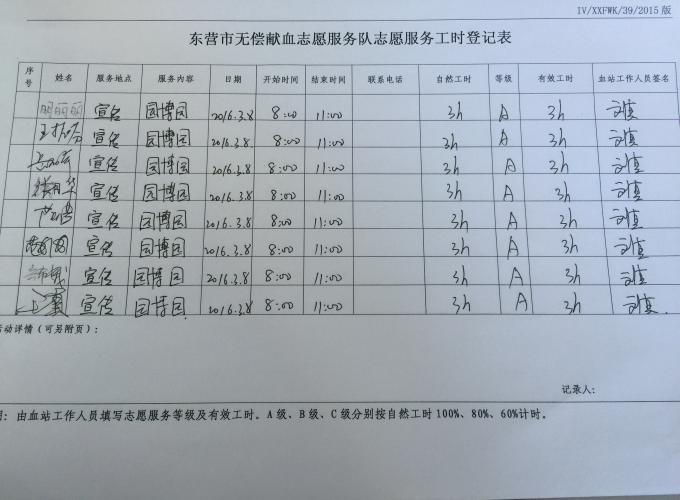 IV/XXFWK/39/2015 版
东营市无偿献血志愿服务队志愿服务工时登记表
序号 姓名 服务地点 服务内容 日期 开始时间 结束时间 联系电话 自然工时 等级 有效工时 血站工作人员签名
明丽丽 宣传 园博园 2016.3.8 8:00 11:00 3h A 3h
宣传 园博园 2016.3.8. 8:00 11:00 3h A 3h
宣传 园博园 2016.3.8 8:00 11:00 3h A 3h
宣传 园博园 2016.3.8 8:00 11:00 3h A 3h
宣传 园博园 2016.3.8 8:00 11:00 3h A 3h
宣传 园博园 2016.3.8 8:00 11:00 3h A 3h
宣传 园博园 2016.3.8 8:00 11:00 3h A 3h
宣传 园博园 2016.3.8 8:00 11:00 3h A 3h
动详情(可另附页):
记录人:
: 由血站工作人员填写志愿服务等级及有效工时。A 级、B 级、C 级分别按自然工时 100%、80%、60%计时。